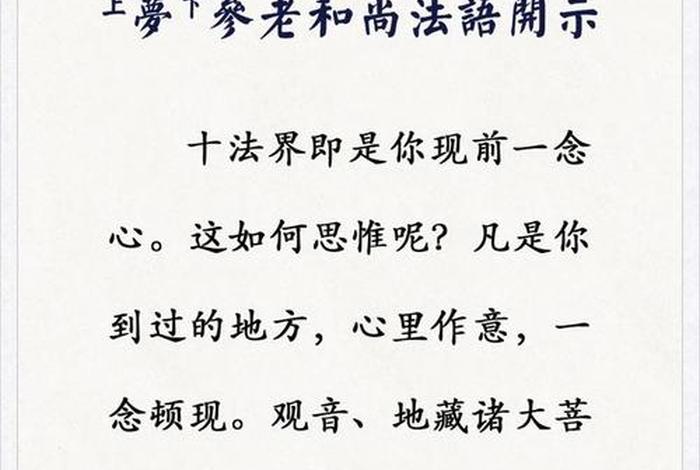 上夢下參老和尚法語開示
十法界即是你现前一念
心。这如何思惟呢？凡是你
到过的地方，心里作意，一
念顿现。观音、地藏诸大菩